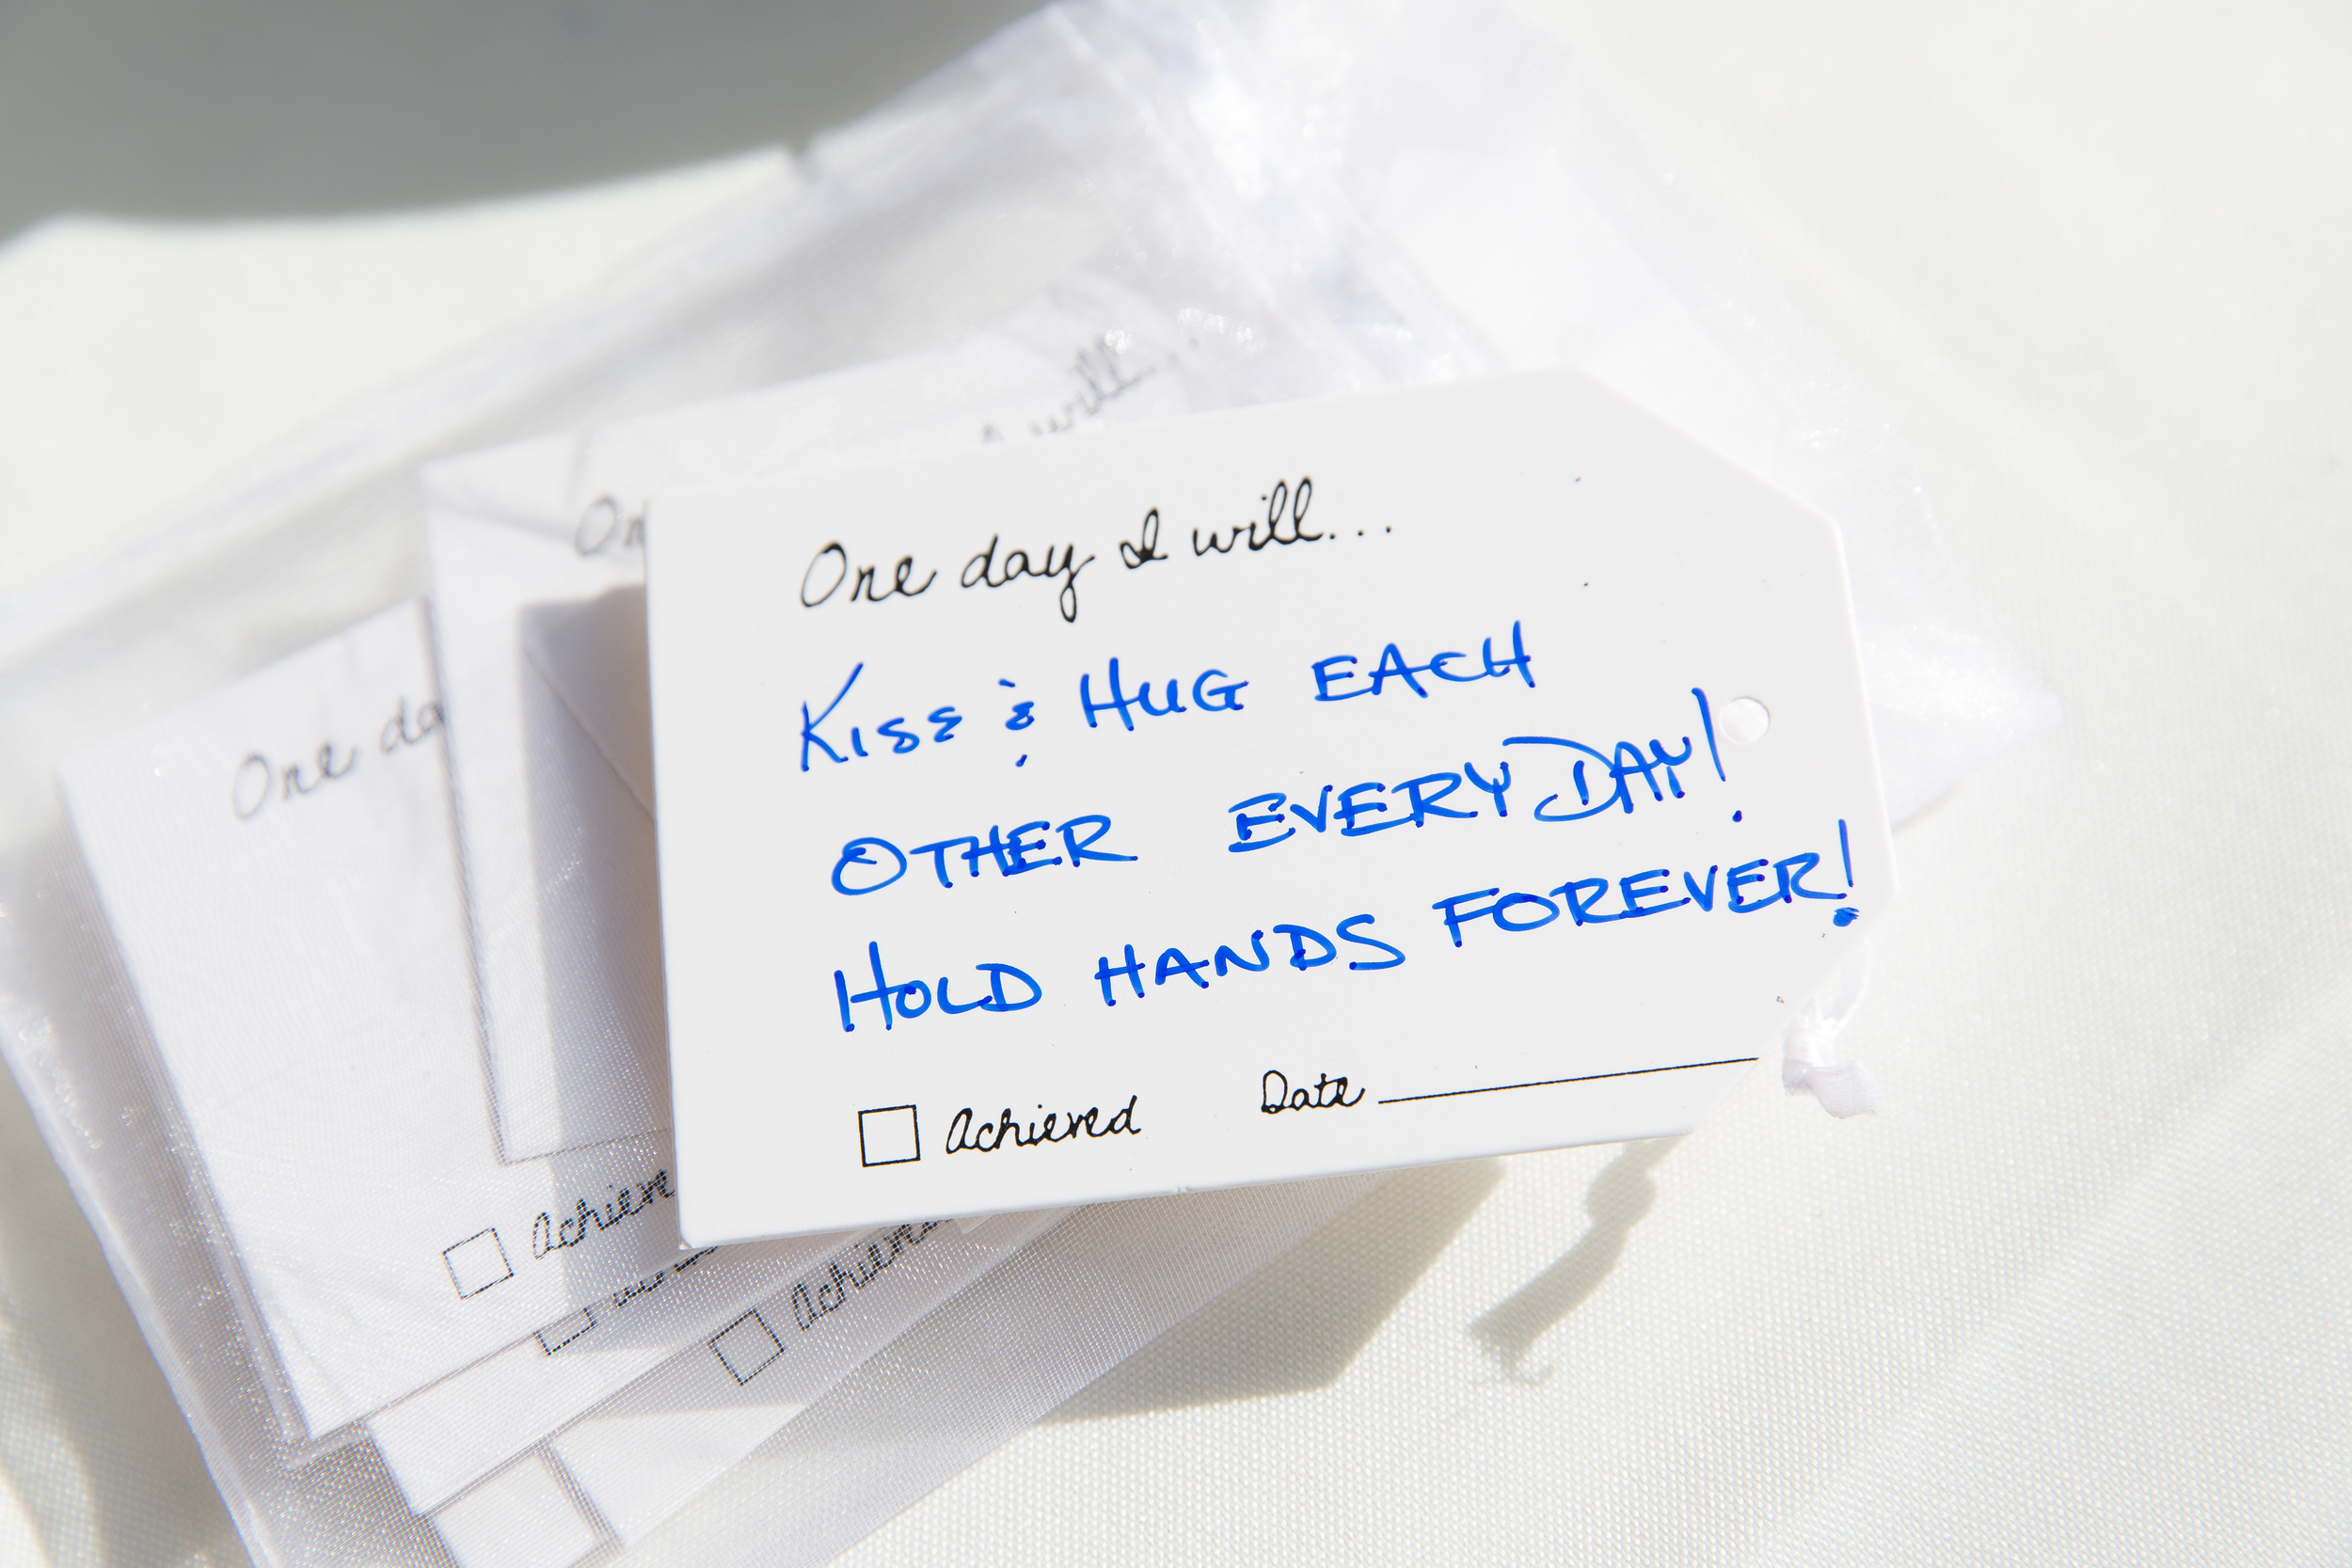 One day I will...
Kiss & HUG EACH
OTHER EVERY DAY!
HOLD HANDS FOREVER!
Achieved Date
will...
On
One da
Achieve
Achieve